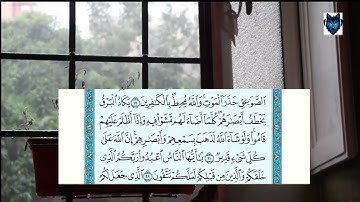 الصَّوَاعِقِ حَذَرَ الْمَوْتِ وَاللَّهُ مُحِيطٌ بِالْكَافِرِينَ ١٩ يَكَادُ الْبَرْقُ
يَخْطَفُ أَبْصَارَهُمْ كُلَّمَا أَضَاءَ لَهُم مَّشَوْا فِيهِ وَإِذَا أَظْلَمَ عَلَيْهِمْ
قَامُوا وَلَوْ شَاءَ اللَّهُ لَذَهَبَ بِسَمْعِهِمْ وَأَبْصَارِهِمْ إِنَّ اللَّهَ عَلَىٰ
كُلِّ شَيْءٍ قَدِيرٌ ٢٠ يَا أَيُّهَا النَّاسُ اعْبُدُوا رَبَّكُمُ الَّذِي
خَلَقَكُمْ وَالَّذِينَ مِن قَبْلِكُمْ لَعَلَّكُمْ تَتَّقُونَ ٢١ الَّذِي جَعَلَ لَكُمُ